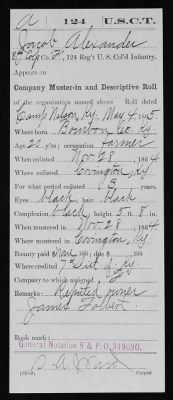 A | 124 | U.S.C.T.
Jacob Alexander
Co. , 124 Reg't U. S. Col'd Infantry.
Appears on
Company Muster-in and Descriptive Roll
of the organization named above. Roll dated
Camp Nelson, Ky. May 4, 1865
Where born Bourbon Co. Ky
Age 20 y'rs; occupation Farmer
When enlisted Nov 28, 1864
Where enlisted Covington, Ky.
For what period enlisted 3 years.
Eyes black; hair black
Complexion black; height 5 ft. 8 in.
When mustered in Nov 28, 1864
Where mustered in Covington, Ky.
Bounty paid $ 100; due $ 100
Where credited 7th Dist of Ky
Company to which assigned
Remarks: Reputed owner
James Tolbert.
Book mark:
General Notation R & P O 349690.
Copyist.